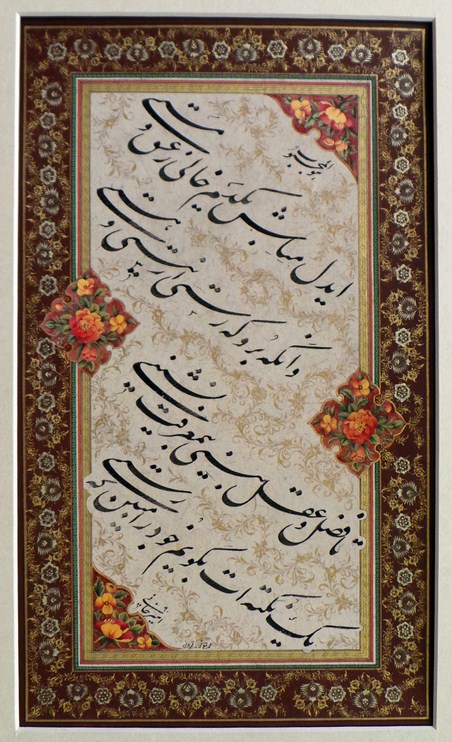 هو المحبوب
ایدل مباش یکدم خالی ز عشق و مستی
وانگه برو که رستی از نیستی و هستی
تا فضل و عقل بینی بیمعرفت نشینی
یک نکته ات بگویم خود را مبین که رستی